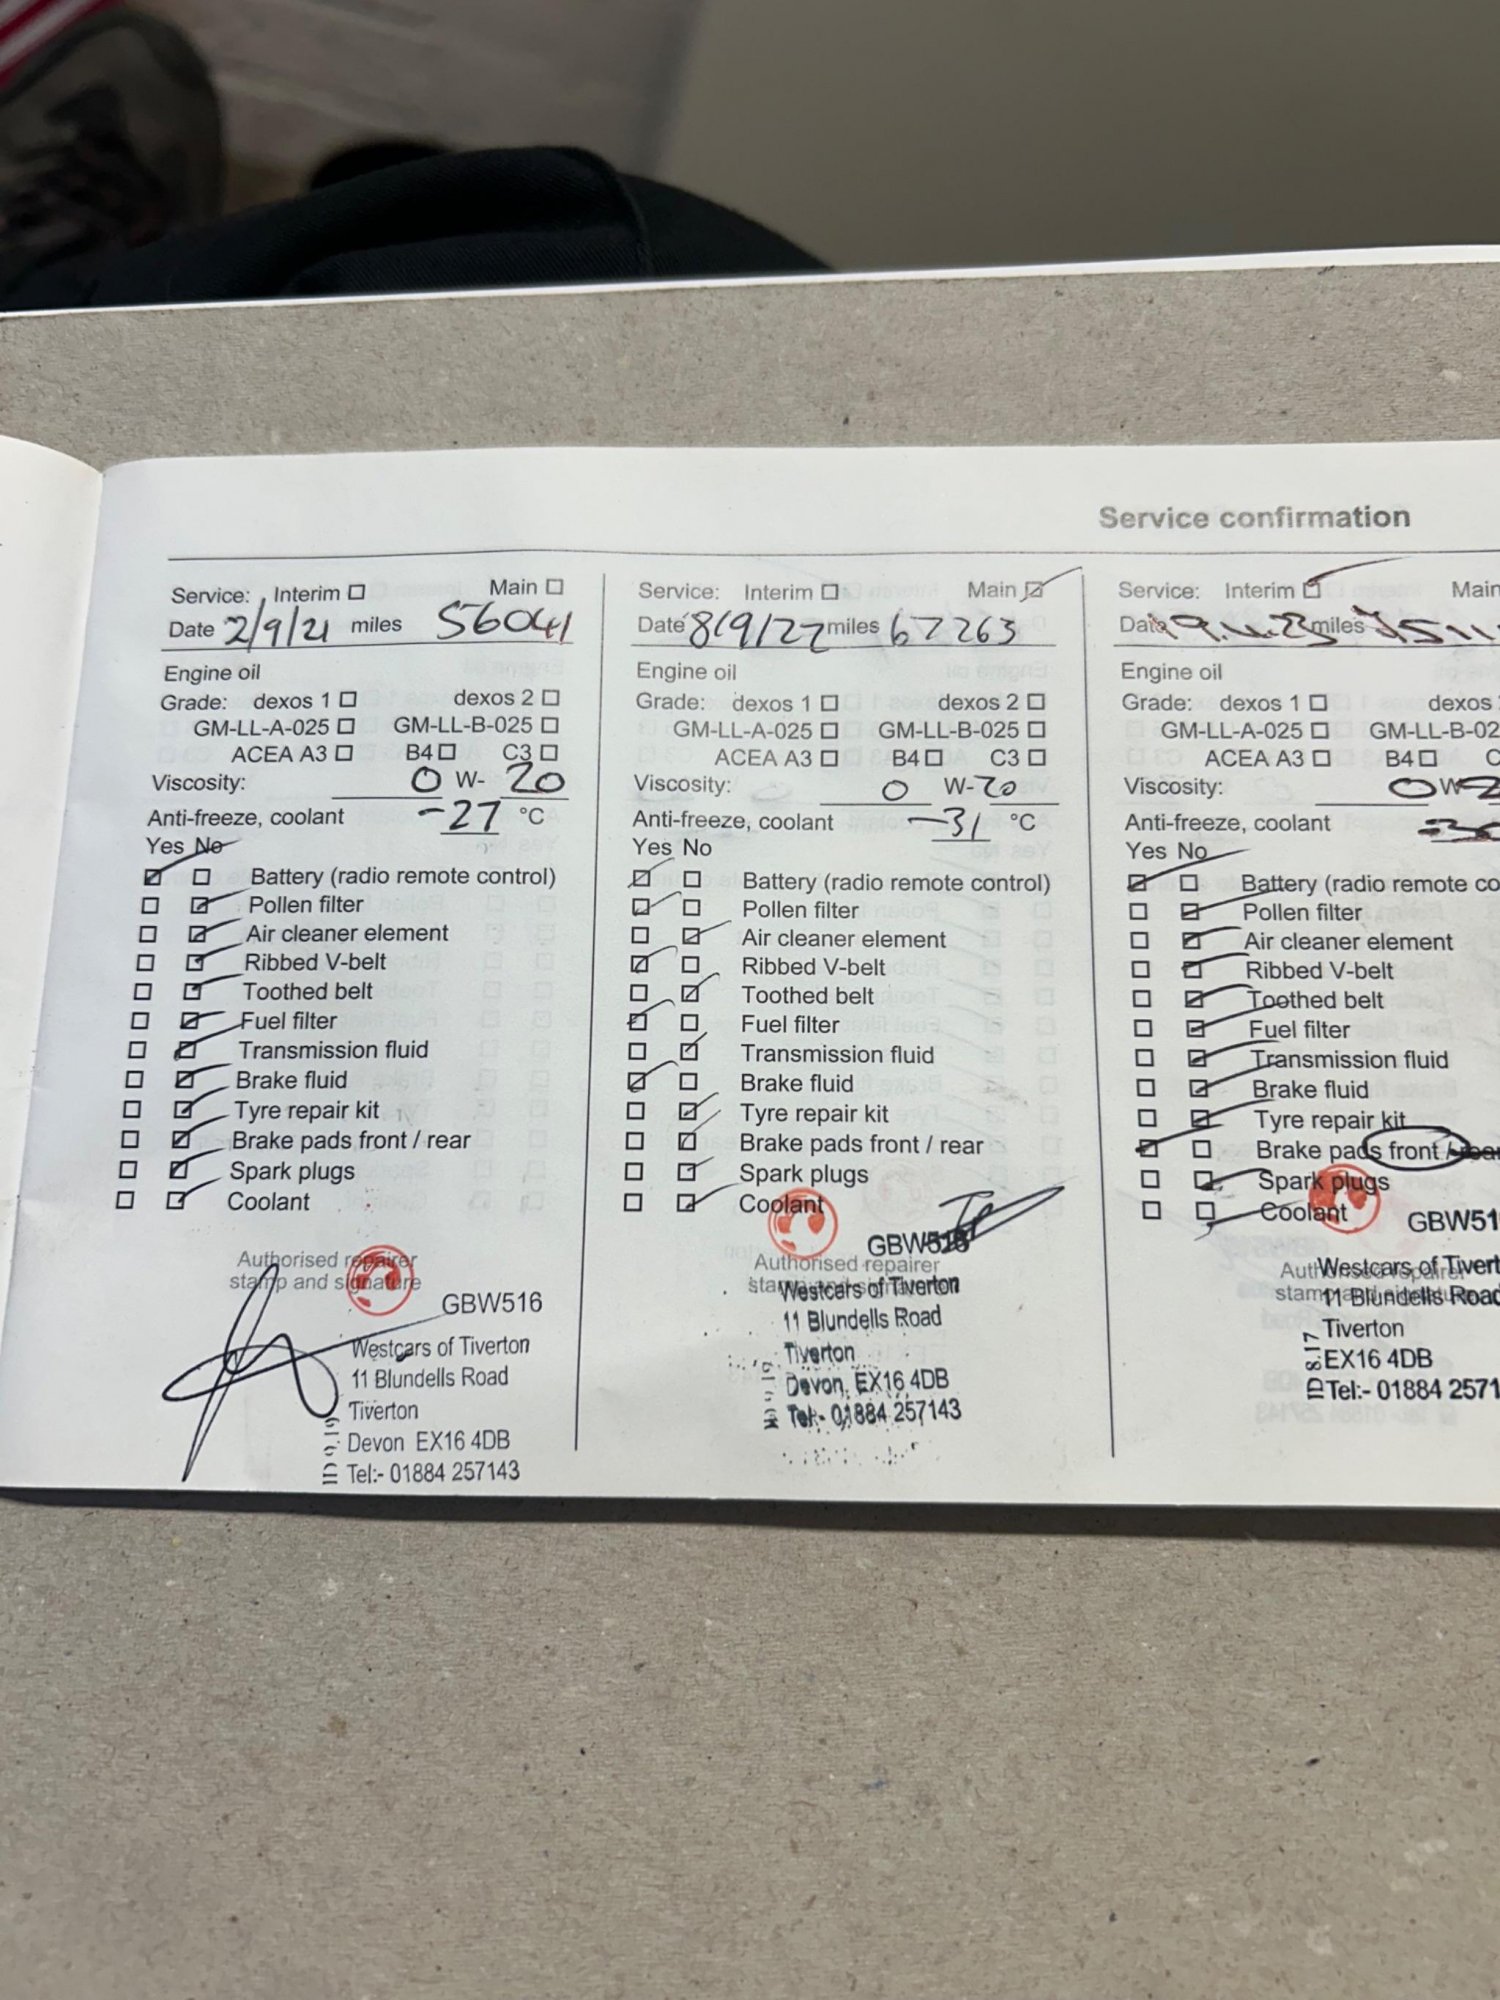 Service confirmation
Service: Interim ☐ Main ☐
Date 2/9/21 miles 56041
Engine oil
Grade: dexos 1 ☐ dexos 2 ☐
GM-LL-A-025 ☐ GM-LL-B-025 ☐
ACEA A3 ☐ B4 ☐ C3 ☐
Viscosity: 0 W- 20
Anti-freeze, coolant -27 °C
Yes No
☑ ☐ Battery (radio remote control)
☐ ☑ Pollen filter
☐ ☑ Air cleaner element
☐ ☑ Ribbed V-belt
☐ ☑ Toothed belt
☐ ☑ Fuel filter
☐ ☑ Transmission fluid
☐ ☑ Brake fluid
☐ ☑ Tyre repair kit
☐ ☑ Brake pads front / rear
☐ ☑ Spark plugs
☐ ☑ Coolant
Authorised repairer
stamp and signature
GBW516
Westcars of Tiverton
11 Blundells Road
Tiverton
Devon EX16 4DB
Tel:- 01884 257143
Service: Interim ☐ Main ☑
Date 8/9/22 miles 67263
Engine oil
Grade: dexos 1 ☐ dexos 2 ☐
GM-LL-A-025 ☐ GM-LL-B-025 ☐
ACEA A3 ☐ B4 ☐ C3 ☐
Viscosity: 0 W- 20
Anti-freeze, coolant -31 °C
Yes No
☑ ☐ Battery (radio remote control)
☑ ☐ Pollen filter
☐ ☑ Air cleaner element
☑ ☐ Ribbed V-belt
☐ ☑ Toothed belt
☑ ☐ Fuel filter
☐ ☑ Transmission fluid
☑ ☐ Brake fluid
☐ ☑ Tyre repair kit
☐ ☑ Brake pads front / rear
☐ ☑ Spark plugs
☐ ☑ Coolant
GBW516
Authorised repairer
stamp and signature
Westcars of Tiverton
11 Blundells Road
Tiverton
Devon EX16 4DB
Tel:- 01884 257143
Service: Interim ☑ Main
Date miles
Engine oil
Grade: dexos 1 ☐ dexos
GM-LL-A-025 ☐ GM-LL-B-02
ACEA A3 ☐ B4 ☐ C
Viscosity: 0 W-
Anti-freeze, coolant
Yes No
☑ ☐ Battery (radio remote co
☐ ☑ Pollen filter
☐ ☑ Air cleaner element
☐ ☑ Ribbed V-belt
☐ ☑ Toothed belt
☐ ☑ Fuel filter
☐ ☑ Transmission fluid
☐ ☑ Brake fluid
☐ ☑ Tyre repair kit
☑ ☐ Brake pads front / rear
☐ ☑ Spark plugs
☐ ☑ Coolant
GBW51
Authorised repairer
stamp and signature
Westcars of Tivert
11 Blundells Road
Tiverton
EX16 4DB
Tel:- 01884 2571